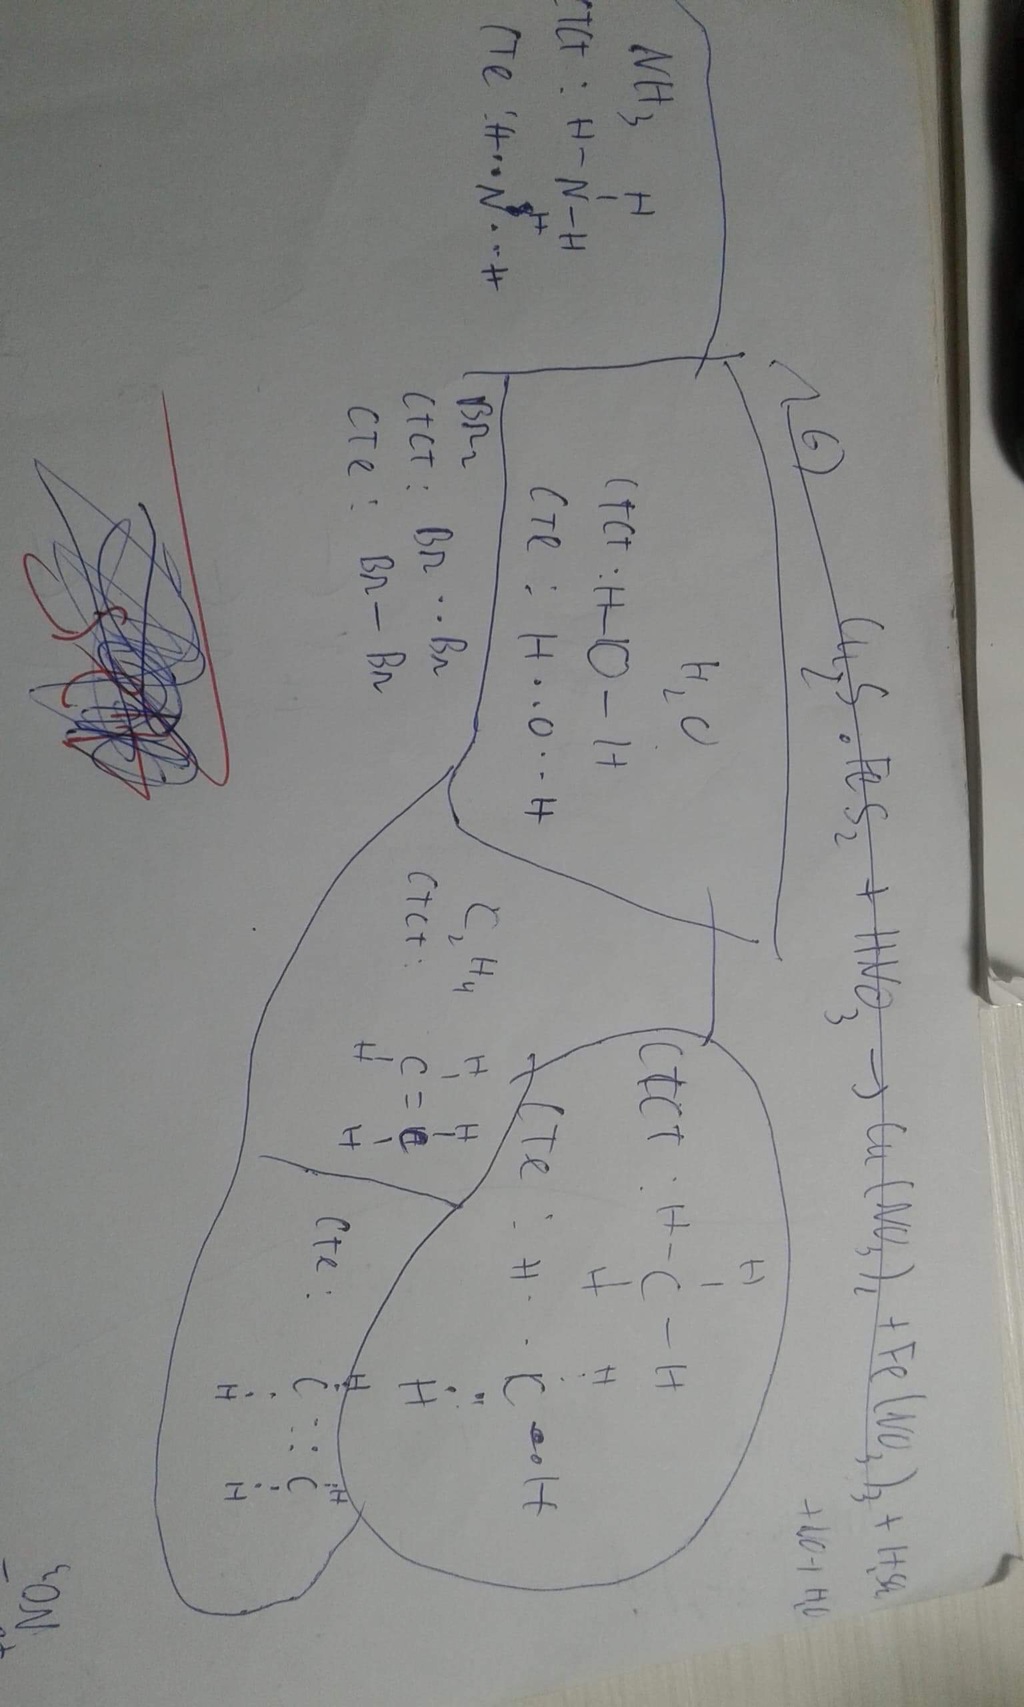 6) Cu2S.FeS2 + HNO3 → Cu(NO3)2 + Fe(NO3)3 + H2SO4
+ NO + H2O
NH3
H
CTCT: H-N-H
CTe: H··N··H
H
H2O
CTCT: H-O-H
CTe: H··O··H
Br2
CTCT: Br··Br
CTe: Br-Br
H
CTCT: H-C-H
H
H
CTe: H··C··H
H
C2H4
CTCT:
H H
C=C
H H
CTe:
H H
C::C
H H
NO3